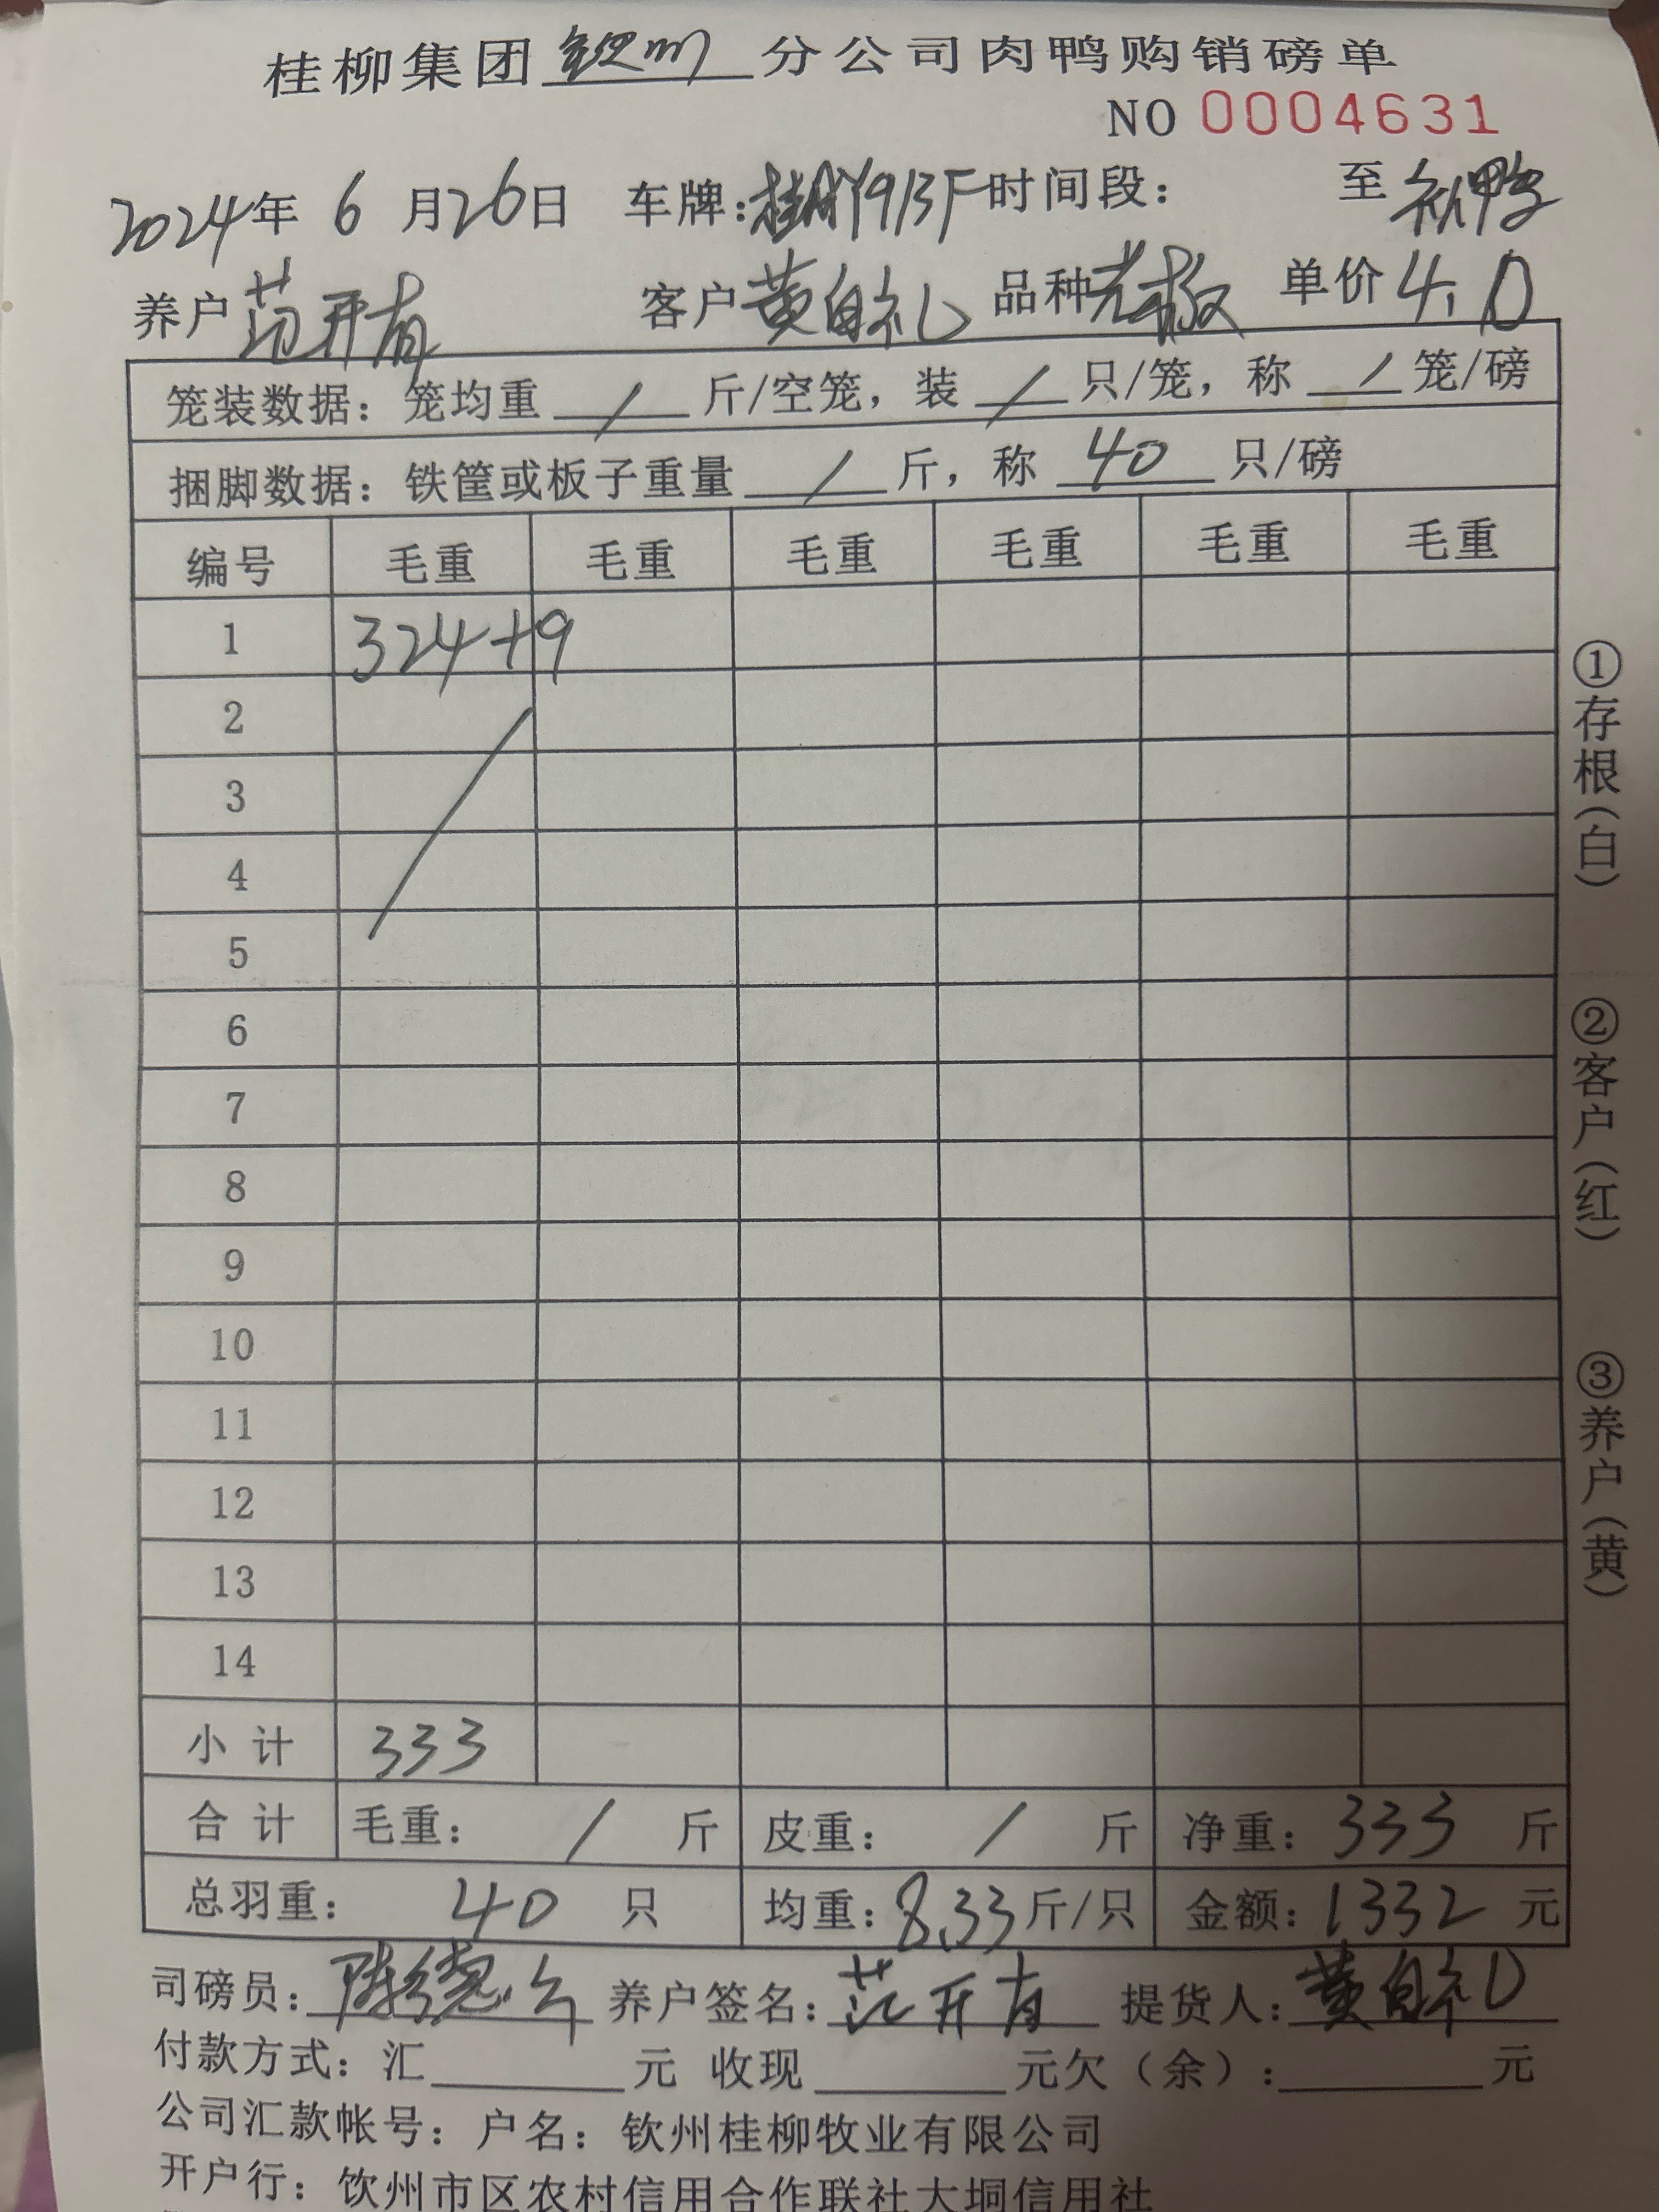 桂柳集团钦州分公司肉鸭购销磅单
NO 0004631
2024年 6 月26日 车牌:桂AY913F时间段: 至
养户范开有 客户黄自礼 品种 单价4.0
笼装数据:笼均重 / 斤/空笼,装 / 只/笼,称 / 笼/磅
捆脚数据:铁筐或板子重量 / 斤,称 40 只/磅
编号 毛重 毛重 毛重 毛重 毛重 毛重
1 324+9
2
3
4
5
6
7
8
9
10
11
12
13
14
小计 333
合计 毛重: / 斤 皮重: / 斤 净重:333 斤
总羽重: 40 只 均重:8.33斤/只 金额:1332元
司磅员: 养户签名:范开有 提货人:黄自礼
付款方式:汇____元 收现____元欠(余):____元
公司汇款帐号:户名:钦州桂柳牧业有限公司
开户行:钦州市区农村信用合作联社大垌信用社
①存根(白)
②客户(红)
③养户(黄)